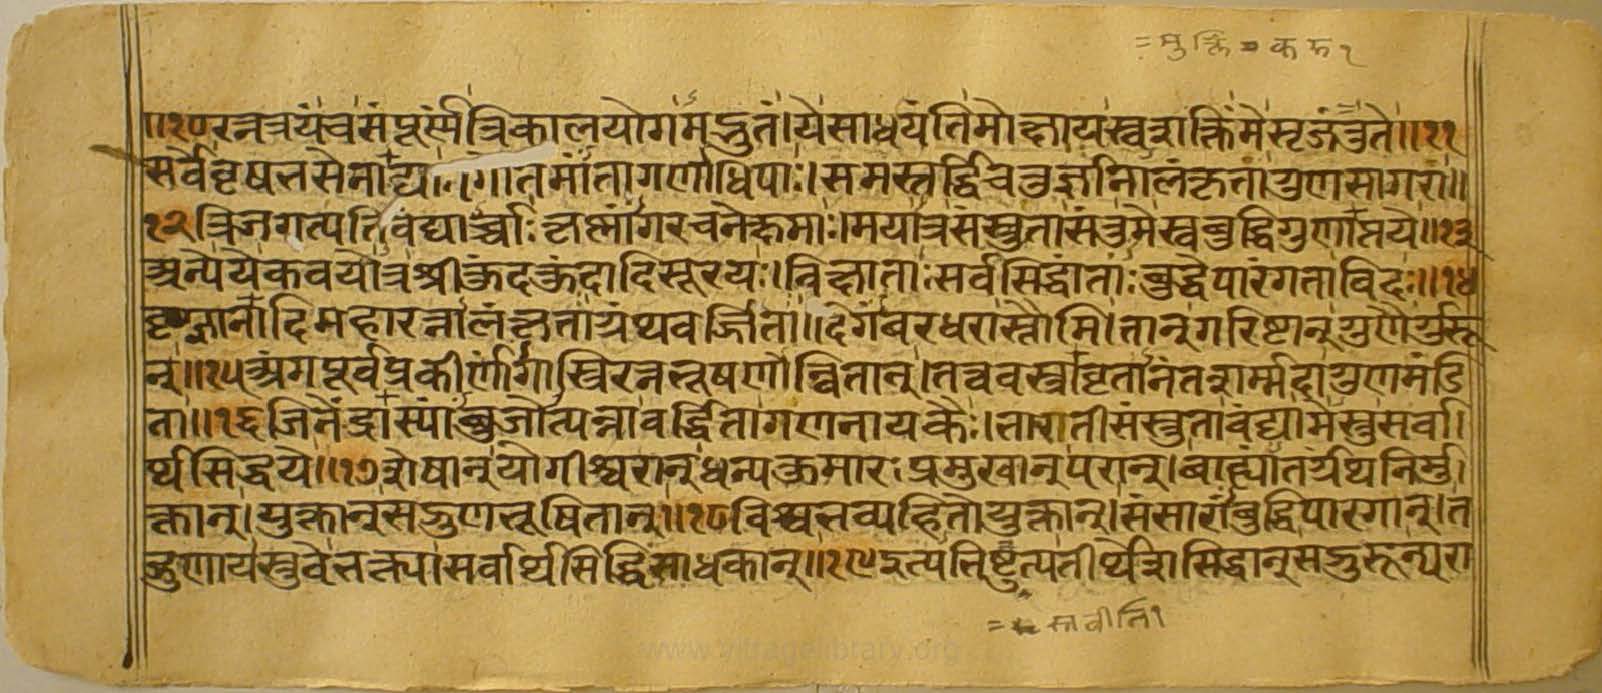 =मुक्ति=
॥१०रत्नत्रयं च संपूर्णं त्रिकालयोगमद्भुतं।ये साधयंति मोक्षाय स्वशक्तिं मे सृजंतु ते॥११
सर्वे वृषभसेनाद्या गोतमांता गणाधिपाः।समस्तर्द्धिचतुर्ज्ञानालंकृता गुणसागराः॥
१२त्रिजगत्पतिवंद्यार्च्याः कृत्स्नांगरचनेक्षमाः।मयात्र संस्तुता संतु मे स्वबुद्धिगुणाप्तये॥१३
अन्ये ये कवयोत्र श्रीकुंदकुंदादिसूरयः।विख्याताः सर्वसिद्धांतांबुद्धेपारंगता विदः॥१४
दृग्ज्ञानादिमहारत्नालंकृता ग्रंथवर्जिता॥दिगंबरधरास्तौमि।तान् गरिष्टान् गुणैर्गुरू
न्॥१५अंगपूर्वप्रकीर्णांगास्त्रिरत्नभूषणान्वितान्।
ता॥१६जिनेंद्रास्यांबुजोत्पन्ना वर्द्धिता गणनायकैः।भारती संस्तुता वंद्या मेस्तु सर्वा।
र्थसिद्धये॥१७शेषान् योगीश्वरान् धन्यकुमारप्रमुखान् परान्।बाह्यांतर्ग्रंथनिर्मु।
क्तान्।युक्तान् सद्गुणभूषितान्॥१८विश्वभव्यहितोयुक्तान्।संसारांबुद्धिपारगान्।त
द्गुणाय स्तुवे भक्त्या सर्वार्थसिद्धिसाधकान्॥१९इत्यभिष्टुत्य तीर्थेशा सिद्धान् सद्गुरून्परा